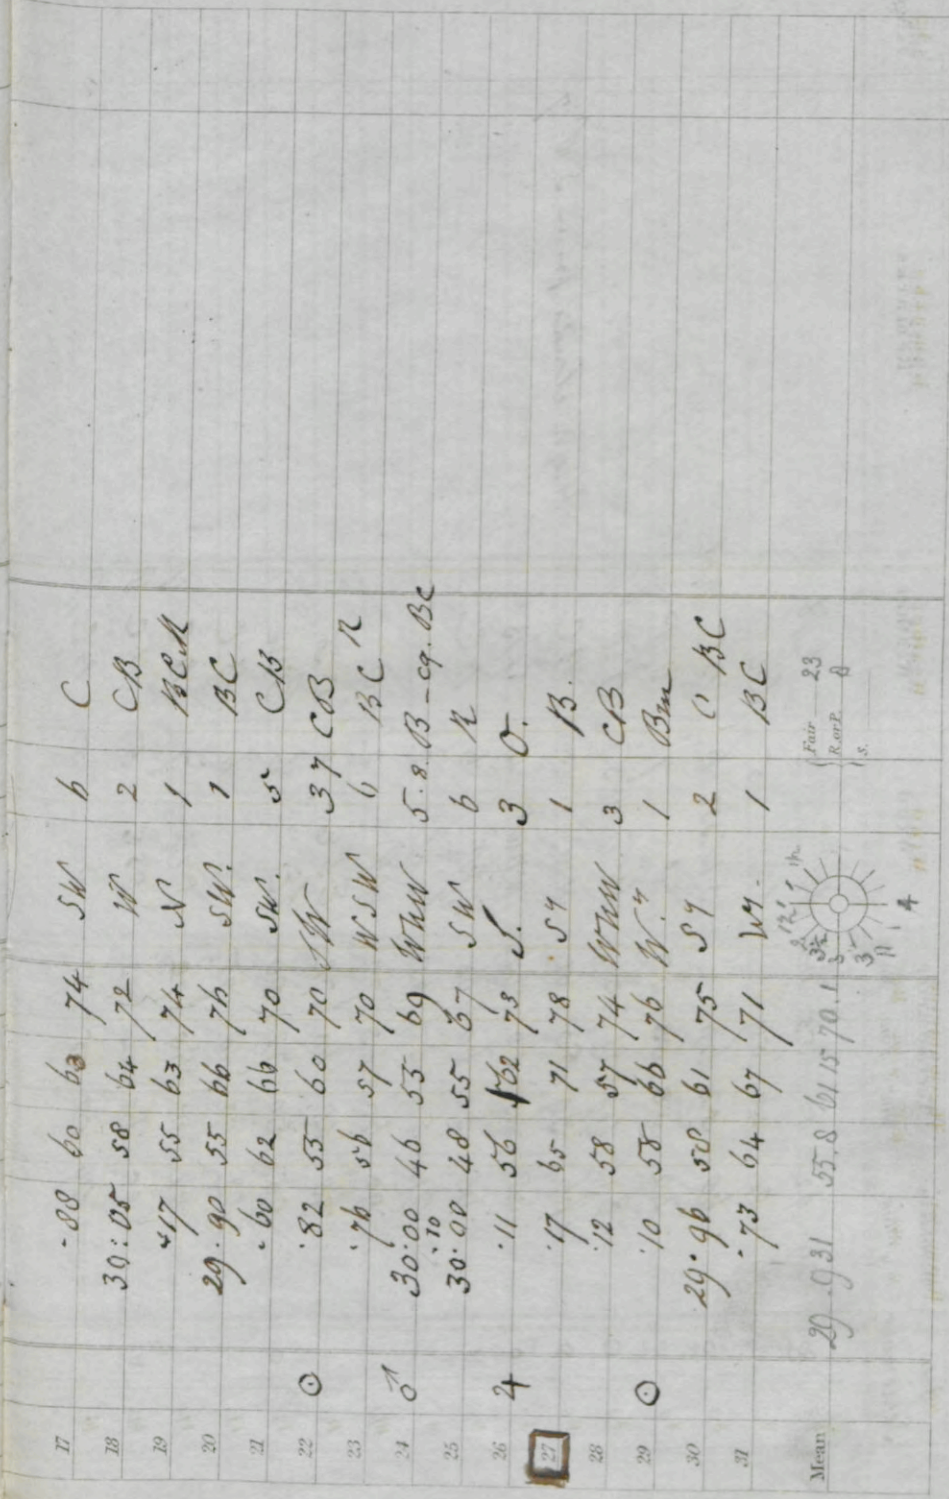 17 .88 60 63 74 SW 6 C
18 30:05 58 64 72 W 2 CB
19 .17 55 63 74 N 1 BCR
20 29.90 55 66 76 SW. 1 BC
21 .60 62 66 70 SW. 5 CB
22 ☉ .82 55 60 70 SW 3 7 CB
23 .76 56 57 70 WSW 6 BC R
24 ♂ 30.00 46 55 69 WNW 5.8 B - cq. BC
.10
25 30.00 48 55 67 SW 6 R
26 ♃ .11 56 62 73 S. 3 O.
27 .17 65 71 78 Sy 1 B.
28 .12 58 57 74 WNW 3 CB
29 ☉ .10 58 66 76 W.y 1 Bm
30 29.96 58 61 75 Sy 2 C BC
31 .73 64 67 71 Wy. 1 BC
Mean 29.931 55.8 61.15 70.1 Fair 23
R. or P. 8
S.